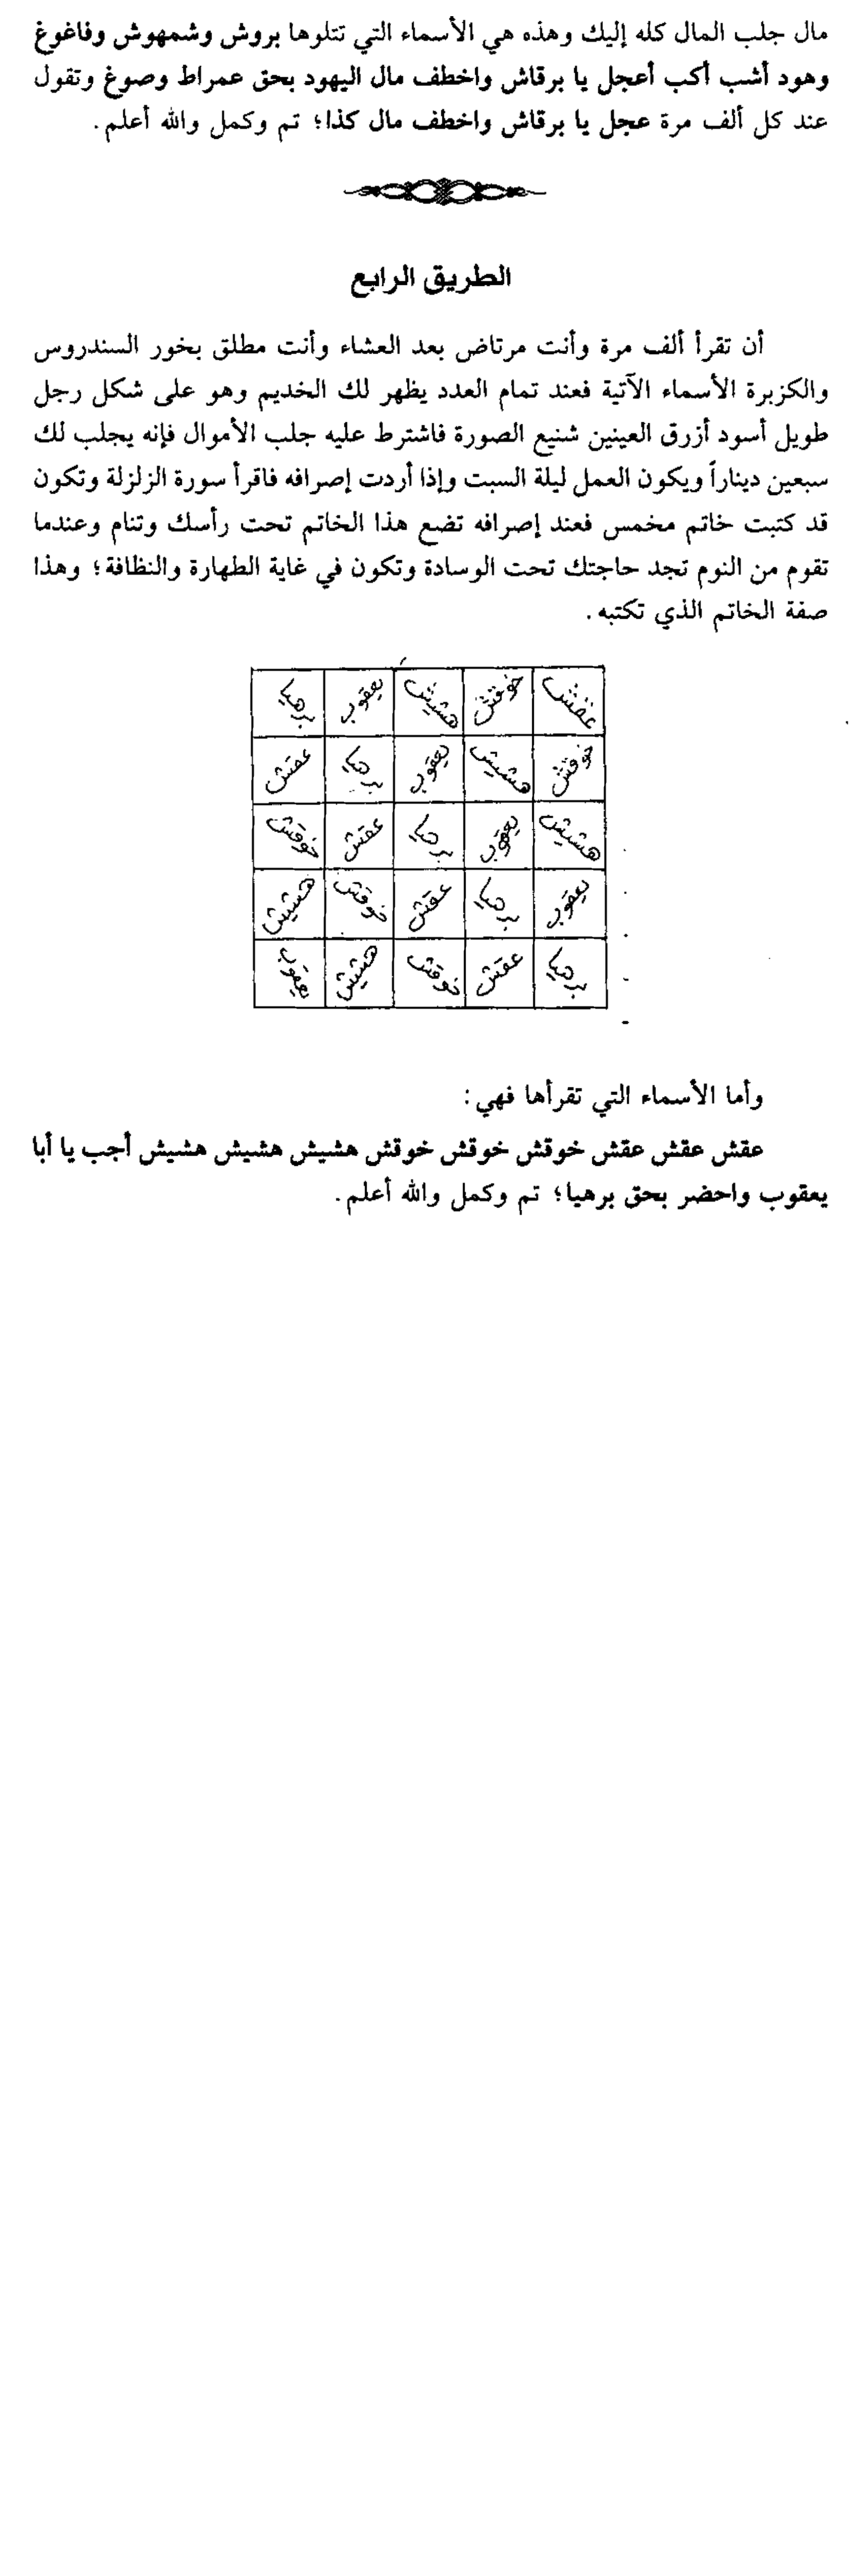 مال جلب المال كله إليك وهذه هي الأسماء التي تتلوها بروش وشمهوش وفاغوغ
وهود أشب أكب أعجل يا برقاش واخطف مال اليهود بحق عمراط وصوغ وتقول
عند كل ألف مرة عجل يا برقاش واخطف مال كذا؛ تم وكمل والله أعلم.
الطريق الرابع
أن تقرأ ألف مرة وأنت مرتاض بعد العشاء وأنت مطلق بخور السندروس
والكزبرة الأسماء الآتية فعند تمام العدد يظهر لك الخديم وهو على شكل رجل
طويل أسود أزرق العينين شنيع الصورة فاشترط عليه جلب الأموال فإنه يجلب لك
سبعين ديناراً ويكون العمل ليلة السبت وإذا أردت إصرافه فاقرأ سورة الزلزلة وتكون
قد كتبت خاتم مخمس فعند إصرافه تضع هذا الخاتم تحت رأسك وتنام وعندما
تقوم من النوم تجد حاجتك تحت الوسادة وتكون في غاية الطهارة والنظافة؛ وهذا
صفة الخاتم الذي تكتبه.
عقش خوقش هشيش يعقوب برهيا
خوقش هشيش يعقوب برهيا عقش
هشيش يعقوب برهيا عقش خوقش
يعقوب برهيا عقش خوقش هشيش
برهيا عقش خوقش هشيش يعقوب
وأما الأسماء التي تقرأها فهي:
عقش عقش عقش خوقش خوقش خوقش هشيش هشيش هشيش أجب يا أبا
يعقوب واحضر بحق برهيا؛ تم وكمل والله أعلم.